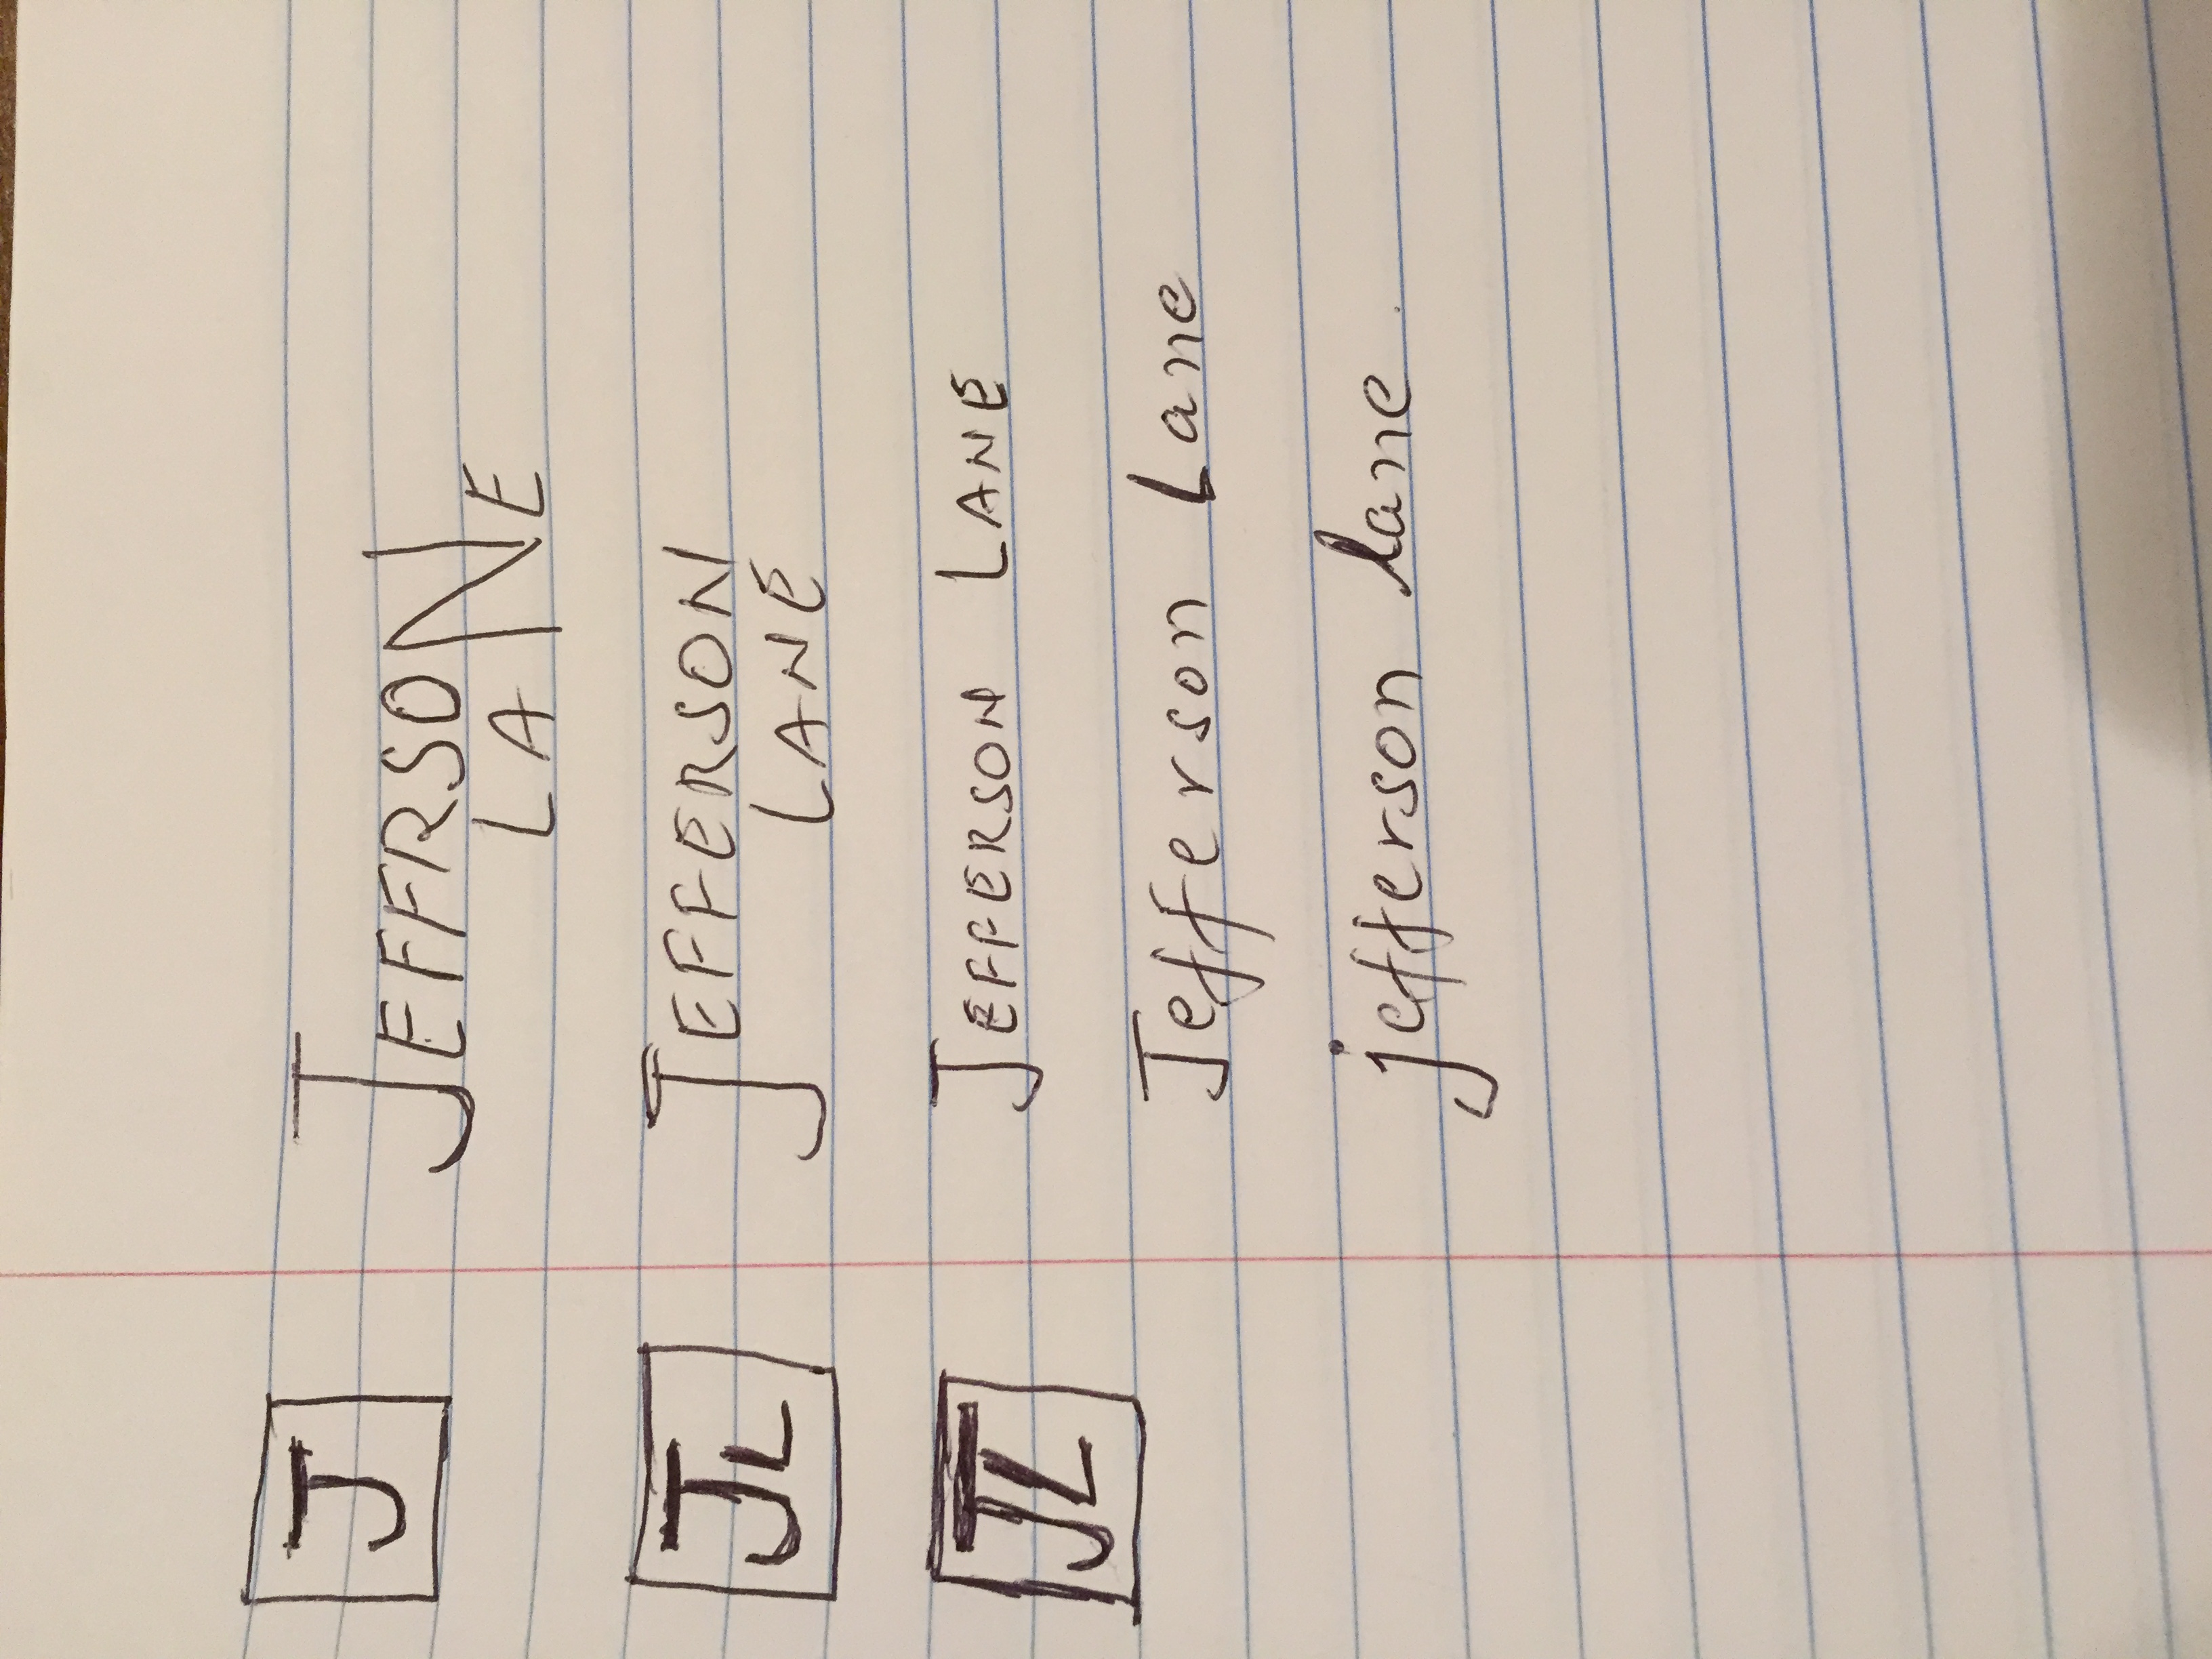 J JEFFRSON
LANE
JL JEFFERSON
LANE
JL JEFFERSON LANE
Jefferson Lane
jefferson lane